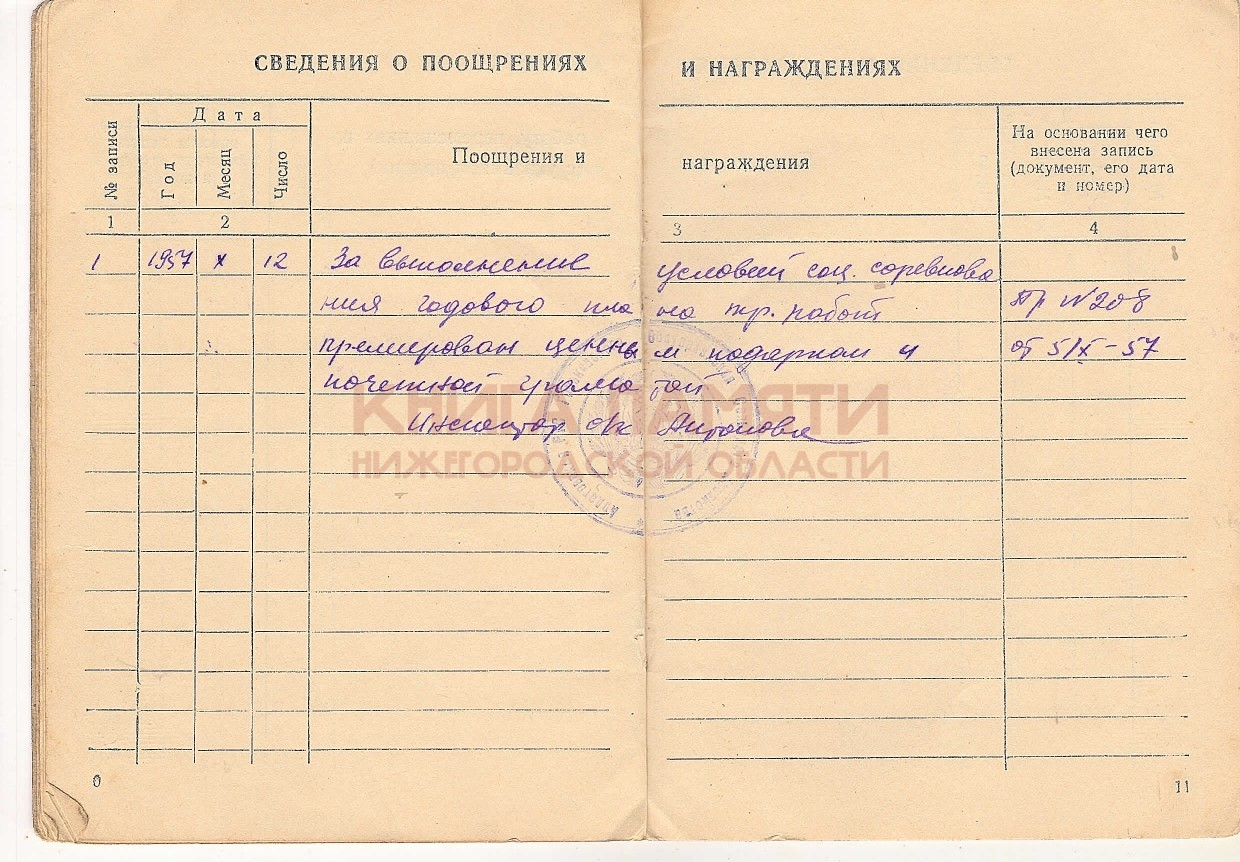 СВЕДЕНИЯ О ПООЩРЕНИЯХ И НАГРАЖДЕНИЯХ
№ записи
Дата
Год Месяц Число
Поощрения и награждения
На основании чего
внесена запись
(документ, его дата
и номер)
1 2 3 4
1 1957 X 12 За выполнение условий соц. соревнова
ния годового пла на тр. работ Пр N 208
премирован ценны м подарком и от 5/X-57
почетной грамо той
Инспектор о/к Антонова
КНИГА ПАМЯТИ
НИЖЕГОРОДСКОЙ ОБЛАСТИ
0 11